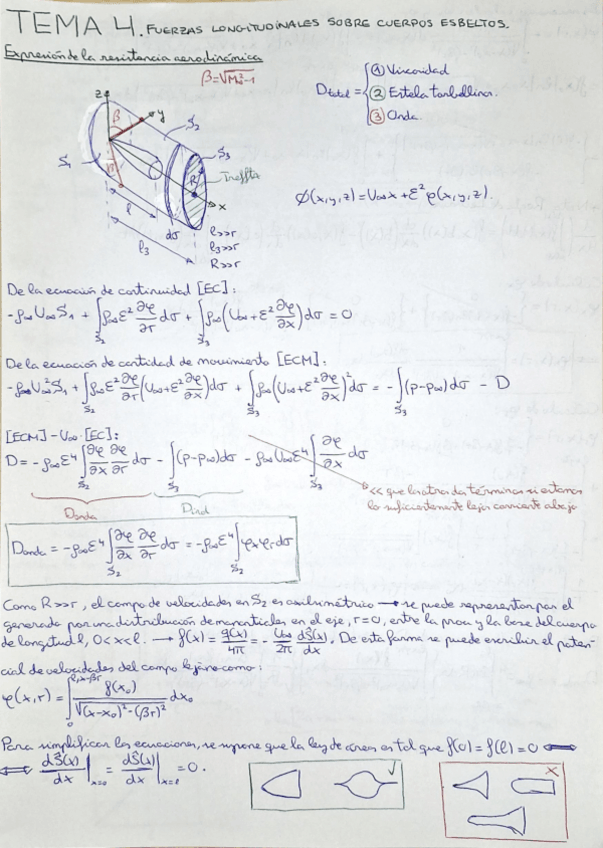 TEMA 4. FUERZAS LONGITUDINALES SOBRE CUERPOS ESBELTOS.
Expresión de la resistencia aerodinámica
β=√(M∞²-1)
Dtotal = { ① Viscosidad
② Estela torbellinos.
③ Onda.
z
y
β
S₂
S₁
S₃
R
Trefftz
x
l
dσ
l₃
l>>r
l₃>>r
R>>r
Ø(x,y,z)=U∞x+ε²φ(x,y,z).
De la ecuación de continuidad [EC]:
-ρ∞U∞S₁ + ∫S₂ ρ∞ε² ∂φ/∂r dσ + ∫S₃ ρ∞(U∞+ε² ∂φ/∂x)dσ = 0
De la ecuación de cantidad de movimiento [ECM]:
-ρ∞U∞²S₁ + ∫S₂ ρ∞ε² ∂φ/∂r (U∞+ε² ∂φ/∂x)dσ + ∫S₃ ρ∞(U∞+ε² ∂φ/∂x)² dσ = -∫S₃ (p-p∞)dσ - D
[ECM]-U∞·[EC]:
D = -ρ∞ε⁴ ∫S₂ ∂φ/∂x ∂φ/∂r dσ - ∫S₃ (p-p∞)dσ - ρ∞U∞ε⁴ ∫S₃ ∂φ/∂x dσ
<< que los otros dos términos si estamos
lo suficientemente lejos corriente abajo
Donda
Dind
Donda = -ρ∞ε⁴ ∫S₂ ∂φ/∂x ∂φ/∂r dσ = -ρ∞ε⁴ ∫S₂ φxφr dσ
Como R>>r, el campo de velocidades en S₂ es axilsimétrico → se puede representar por el
generado por una distribución de manantiales en el eje, r=0, entre la proa y la base del cuerpo
de longitud l, 0<x<l. → f(x) = q(x)/4π = -U∞/2π dS(x)/dx. De esta forma se puede escribir el poten-
cial de velocidades del campo lejano como:
φ(x,r) = ∫₀^(l,x-βr) f(x₀)/√((x-x₀)²-(βr)²) dx₀
Para simplificar las ecuaciones, se supone que la ley de áreas es tal que f(0)=f(l)=0 ⟺
⟺ dS(x)/dx |x=0 = dS(x)/dx |x=l = 0.
✓
✗